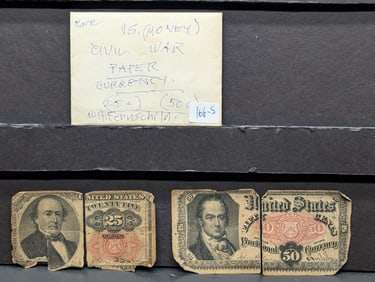 RARE
U.S. (MONEY)
CIVIL WAR
PAPER
CURRENCY.
(25¢) (50¢)
166-S
UNITED STATES
TWENTY FIVE
25
CENTS
United States
FIFTY CENTS
50 50
Fractional Currency
50